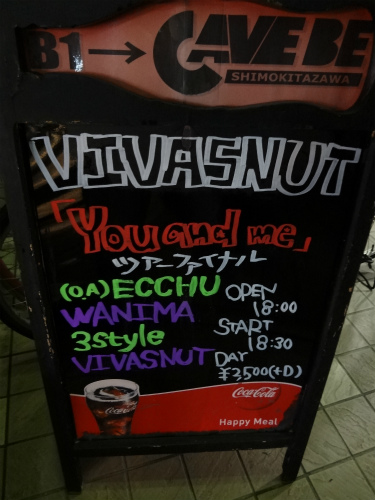 B1→ CAVE BE
SHIMOKITAZAWA
VIVASNUT
「You and me」
ツアーファイナル
(O.A) ECCHU
WANIMA
3style
VIVASNUT
OPEN
18:00
START
18:30
DAY
¥2,500(+D)
Coca-Cola
Coca-Cola
Happy Meal